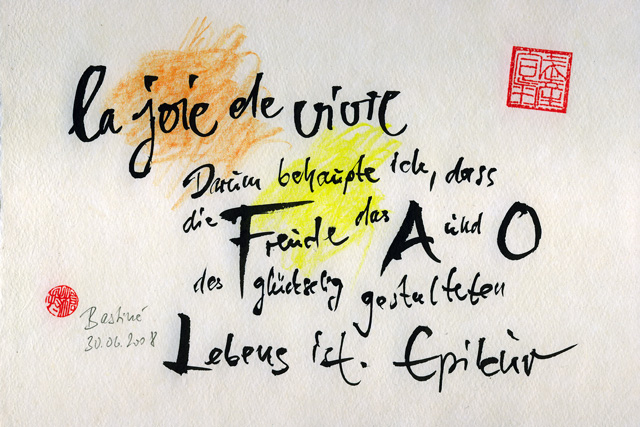 la joie de vivre
Darum behaupte ich, dass
die Freude das A und O
des glückselig gestalteten
Lebens ist. Epikur
Bastiné
30.06.2008